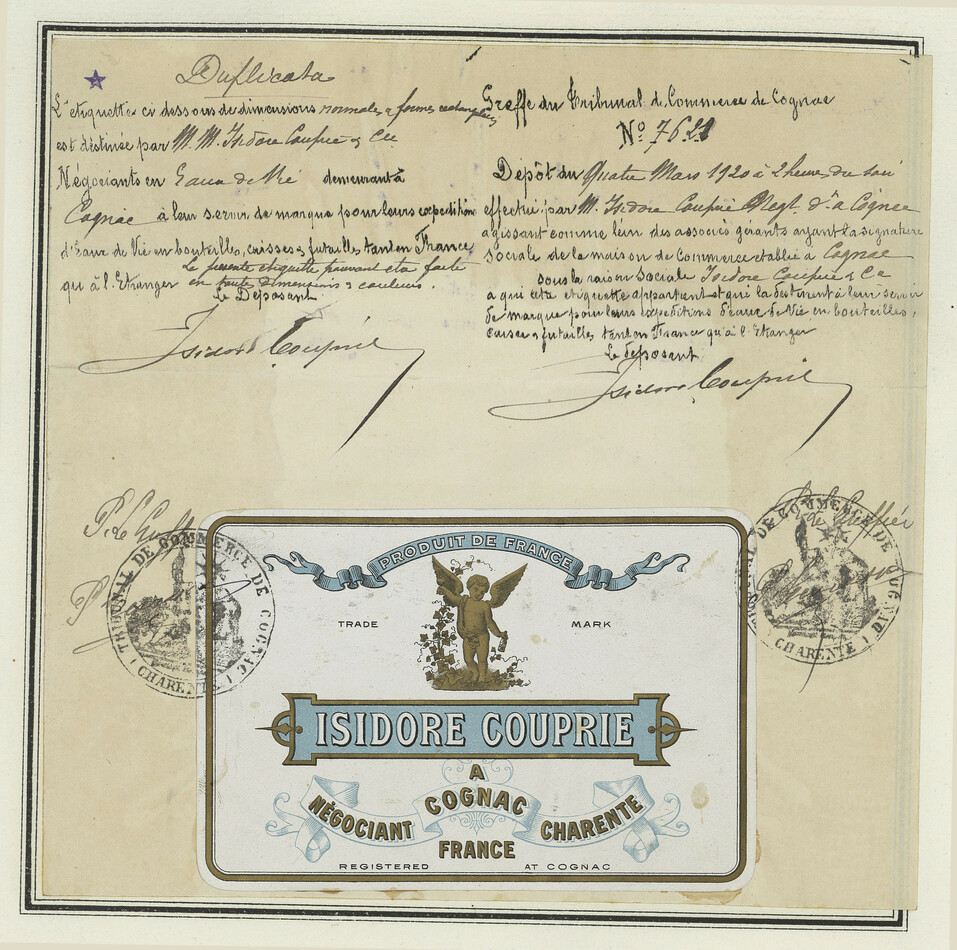 Duplicata
L'etiquette ci dessous de dimensions normales & formes rectangulaires
est destinée par M. M. Isidore Couprie & Cie
Négociants en Eaux de Vie demeurant à
Cognac à leur servir de marque pour leurs expéditions
d'Eaux de Vie en bouteilles, caisses & futailles tant en France
qu à l'Etranger
La présente étiquette pouvant etre faite
en toute dimensions & couleurs.
Le Déposant
Isidore Couprie
Greffe du Tribunal de Commerce de Cognac
No 7621
Dépôt du Quatre Mars 1920 à 2 heures du soir
effectué par M. Isidore Couprie Negt. dt. à Cognac
agissant comme l'un des associés gerants ayant la signature
sociale de la maison de Commerce etablie à Cognac
sous la raison Sociale Isidore Couprie & Cie
a qui cette etiquette appartient et qui la destinent à leur servir
de marque pour leurs expeditions d'eaux de Vie en bouteilles,
caisses & futailles tant en France qu'à l'Etranger
Le deposant
Isidore Couprie
P. Le Greffier
P. Le Greffier
TRIBUNAL DE COMMERCE DE COGNAC
(CHARENTE)
TRIBUNAL DE COMMERCE DE COGNAC
(CHARENTE)
PRODUIT DE FRANCE
TRADE MARK
ISIDORE COUPRIE
A
COGNAC
NÉGOCIANT CHARENTE
FRANCE
REGISTERED AT COGNAC